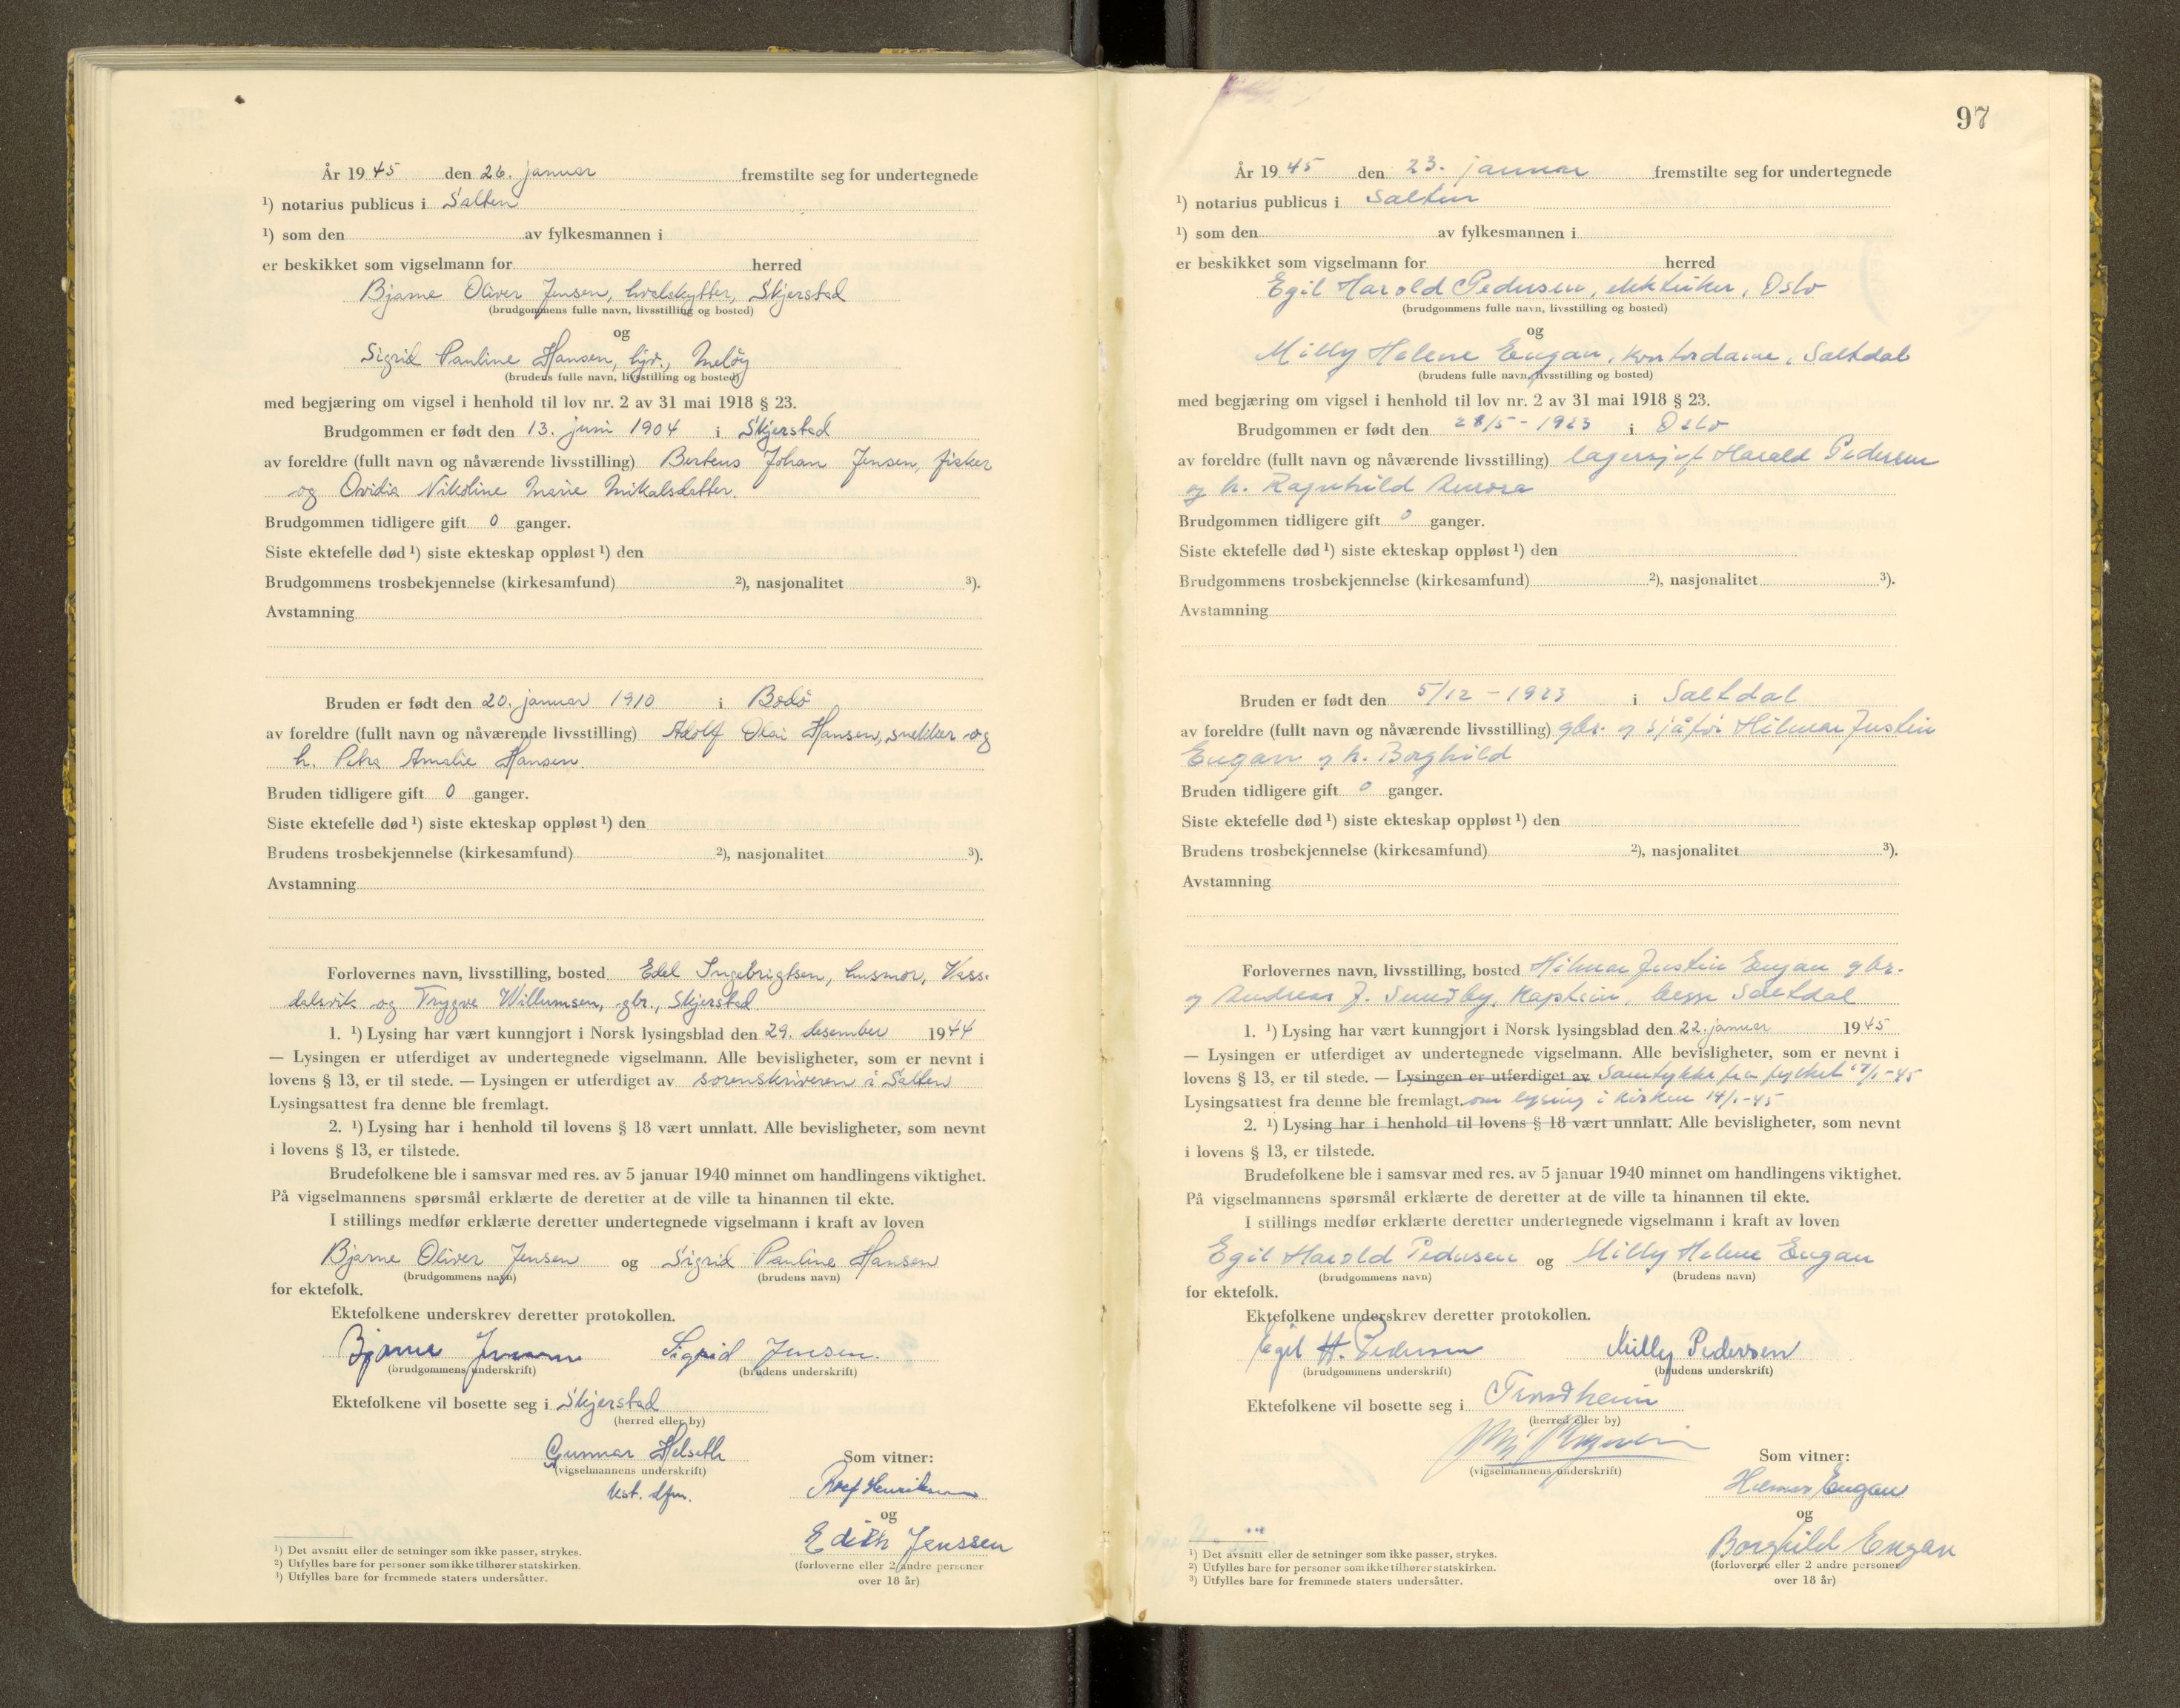 År 1945 den 26. januar fremstilte seg for undertegnede
¹) notarius publicus i Salten
¹) som den av fylkesmannen i
er beskikket som vigselmann for herred
Bjarne Oliver Jensen, hvalskytter, Skjerstad
(brudgommens fulle navn, livsstilling og bosted)
og
Sigrid Pauline Hansen, hjv., Meløy
(brudens fulle navn, livsstilling og bosted)
med begjæring om vigsel i henhold til lov nr. 2 av 31 mai 1918 § 23.
Brudgommen er født den 13. juni 1904 i Skjerstad
av foreldre (fullt navn og nåværende livsstilling) Berteus Johan Jensen, fisker
og Ovidia Nikoline Marie Mikalsdatter.
Brudgommen tidligere gift 0 ganger.
Siste ektefelle død ¹) siste ekteskap oppløst ¹) den
Brudgommens trosbekjennelse (kirkesamfund) ²), nasjonalitet ³).
Avstamning
Bruden er født den 20. januar 1910 i Bodö
av foreldre (fullt navn og nåværende livsstilling) Adolf Olai Hansen, snekker og
h. Petra Amalie Hansen.
Bruden tidligere gift 0 ganger.
Siste ektefelle død ¹) siste ekteskap oppløst ¹) den
Brudens trosbekjennelse (kirkesamfund) ²), nasjonalitet ³).
Avstamning
Forlovernes navn, livsstilling, bosted Edel Ingebrigtsen, husmor, Vass-
dalsvik og Trygve Willumsen, gbr., Skjerstad
1. ¹) Lysing har vært kunngjort i Norsk lysingsblad den 29. desember 1944
— Lysingen er utferdiget av undertegnede vigselmann. Alle bevisligheter, som er nevnt i
lovens § 13, er til stede. — Lysingen er utferdiget av sorenskriveren i Salten
Lysingsattest fra denne ble fremlagt.
2. ¹) Lysing har i henhold til lovens § 18 vært unnlatt. Alle bevisligheter, som nevnt
i lovens § 13, er tilstede.
Brudefolkene ble i samsvar med res. av 5 januar 1940 minnet om handlingens viktighet.
På vigselmannens spørsmål erklærte de deretter at de ville ta hinannen til ekte.
I stillings medfør erklærte deretter undertegnede vigselmann i kraft av loven
Bjarne Oliver Jensen og Sigrid Pauline Hansen
(brudgommens navn) (brudens navn)
for ektefolk.
Ektefolkene underskrev deretter protokollen.
Bjarne Jensen Sigrid Jensen.
(brudgommens underskrift) (brudens underskrift)
Ektefolkene vil bosette seg i Skjerstad
(herred eller by)
Gunnar Helseth
(vigselmannens underskrift)
kst. dfm.
Som vitner:
Rolf Henriksen
og
Edith Jenssen
(forloverne eller 2 andre personer
over 18 år)
¹) Det avsnitt eller de setninger som ikke passer, strykes.
²) Utfylles bare for personer som ikke tilhører statskirken.
³) Utfylles bare for fremmede staters undersåtter.
97
År 1945 den 23. januar fremstilte seg for undertegnede
¹) notarius publicus i Salten
¹) som den av fylkesmannen i
er beskikket som vigselmann for herred
Egil Harold Pedersen, elektriker, Oslo
(brudgommens fulle navn, livsstilling og bosted)
og
Milly Helene Engan, kontordame, Saltdal
(brudens fulle navn, livsstilling og bosted)
med begjæring om vigsel i henhold til lov nr. 2 av 31 mai 1918 § 23.
Brudgommen er født den 28/5 - 1923 i Oslo
av foreldre (fullt navn og nåværende livsstilling) lagersjef Harald Pedersen
og h. Ragnhild Aurora
Brudgommen tidligere gift 0 ganger.
Siste ektefelle død ¹) siste ekteskap oppløst ¹) den
Brudgommens trosbekjennelse (kirkesamfund) ²), nasjonalitet ³).
Avstamning
Bruden er født den 5/12 - 1923 i Saltdal
av foreldre (fullt navn og nåværende livsstilling) gbr. og sjåfør Hilmar Justin
Engan og h. Borghild
Bruden tidligere gift 0 ganger.
Siste ektefelle død ¹) siste ekteskap oppløst ¹) den
Brudens trosbekjennelse (kirkesamfund) ²), nasjonalitet ³).
Avstamning
Forlovernes navn, livsstilling, bosted Hilmar Justin Engan gbr.
og Andreas J. Sundby, kaptein, begge Saltdal
1. ¹) Lysing har vært kunngjort i Norsk lysingsblad den 22. januar 1945
— Lysingen er utferdiget av undertegnede vigselmann. Alle bevisligheter, som er nevnt i
lovens § 13, er til stede. — Lysingen er utferdiget av Samtykke fra fylket /1-45
Lysingsattest fra denne ble fremlagt. om lysing i kirken 14/1-45
2. ¹) Lysing har i henhold til lovens § 18 vært unnlatt. Alle bevisligheter, som nevnt
i lovens § 13, er tilstede.
Brudefolkene ble i samsvar med res. av 5 januar 1940 minnet om handlingens viktighet.
På vigselmannens spørsmål erklærte de deretter at de ville ta hinannen til ekte.
I stillings medfør erklærte deretter undertegnede vigselmann i kraft av loven
Egil Harold Pedersen og Milly Helene Engan
(brudgommens navn) (brudens navn)
for ektefolk.
Ektefolkene underskrev deretter protokollen.
Egil H. Pedersen Milly Pedersen
(brudgommens underskrift) (brudens underskrift)
Ektefolkene vil bosette seg i Trondheim
(herred eller by)
(vigselmannens underskrift)
Som vitner:
Hilmar Engan
og
Borghild Engan
(forloverne eller 2 andre personer
over 18 år)
¹) Det avsnitt eller de setninger som ikke passer, strykes.
²) Utfylles bare for personer som ikke tilhører statskirken.
³) Utfylles bare for fremmede staters undersåtter.